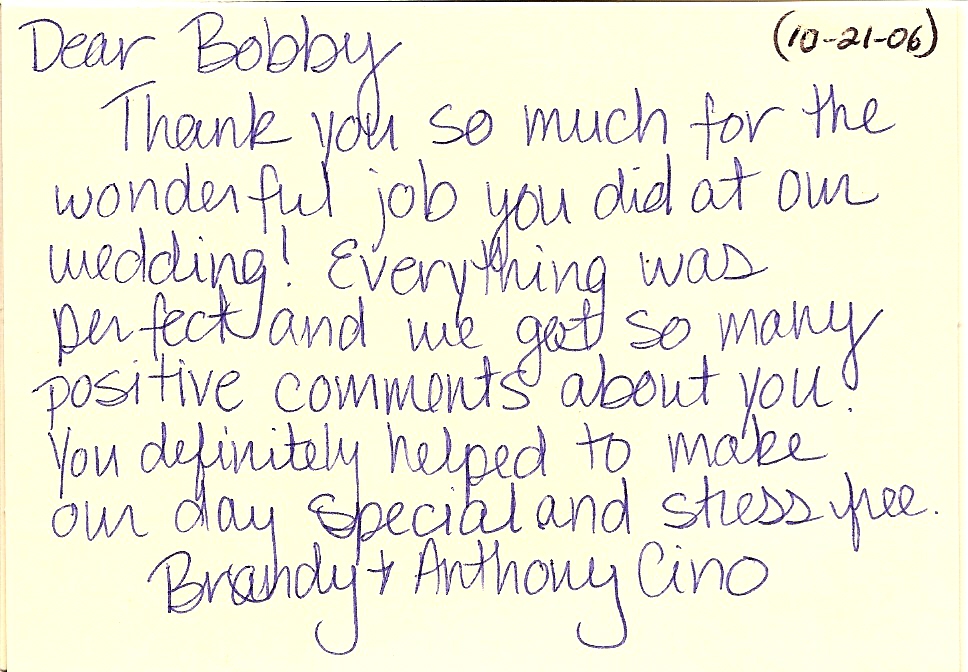 Dear Bobby (10-21-06)
Thank you so much for the
wonderful job you did at our
wedding! Everything was
perfect and we got so many
positive comments about you!
You definitely helped to make
our day special and stress free.
Brandy + Anthony Cino